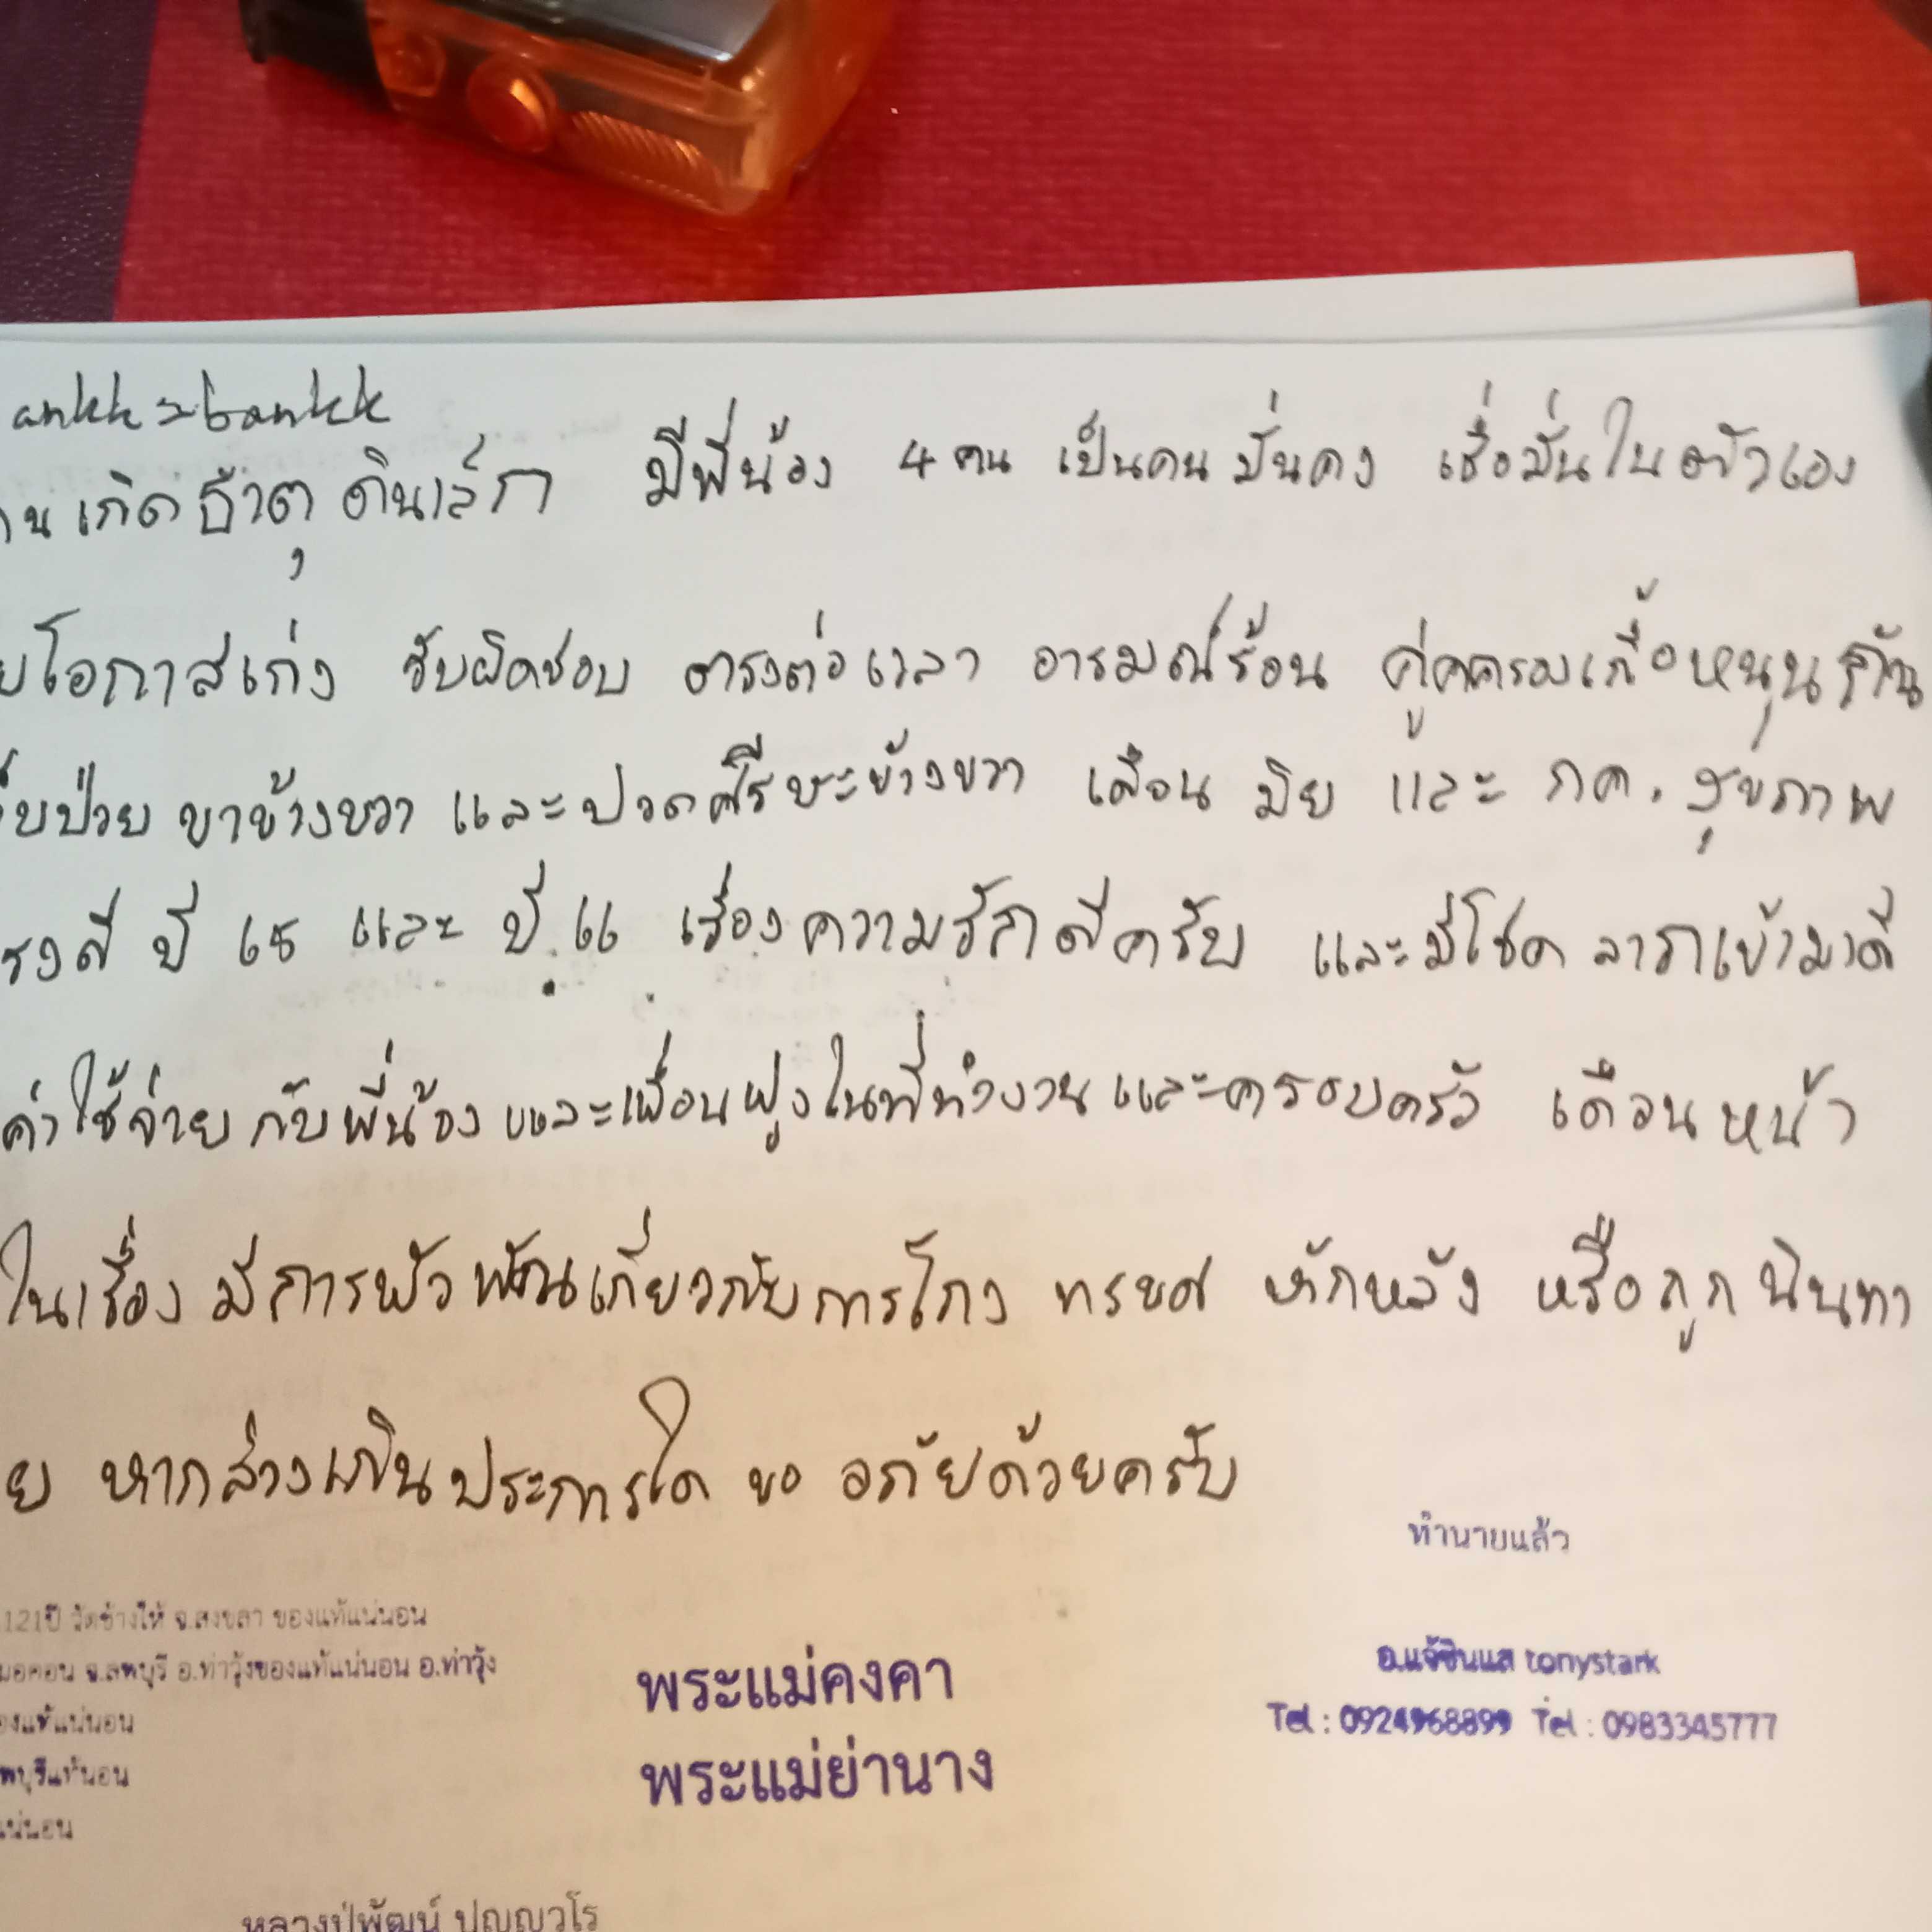 ankk=bankk
าน เกิดธาตุ ดินเล็ก มีพี่น้อง 4 คน เป็นคนมั่นคง เชื่อมั่นในตัวเอง
ยโอกาสเก่ง รับผิดชอบ ตรงต่อเวลา อารมณ์ร้อน คู่ครองเกื้อหนุนกัน
ป่วย ขาข้างขวา และปวดศีรษะข้างขวา เดือน มิย และ กค. สุขภาพ
รงดี ปี 65 และ ปี 66 เรื่องความรักดีครับ และมีโชคลาภเข้ามาดี
ค่าใช้จ่าย กับพี่น้อง และเพื่อนฝูงในที่ทำงานและครอบครัว เดือนหน้า
ในเรื่อง มีการพัวพันเกี่ยวกับการโกง ทรยศ หักหลัง หรือถูกนินทา
ย หากล่วงเกินประการใด ขออภัยด้วยครับ
ทำนายแล้ว
121ปี วัดช้างให้ จ.สงขลา ของแท้แน่นอน
จ.ลพบุรี อ.ท่าวุ้งของแท้แน่นอน อ.ท่าวุ้ง
องแท้แน่นอน
พบุรีแท้นอน
แน่นอน
พระแม่คงคา
พระแม่ย่านาง
tonystark
Tel : 0924968899 Tel : 0983345777
หลวงปู่พัฒน์ ปุญญวโร